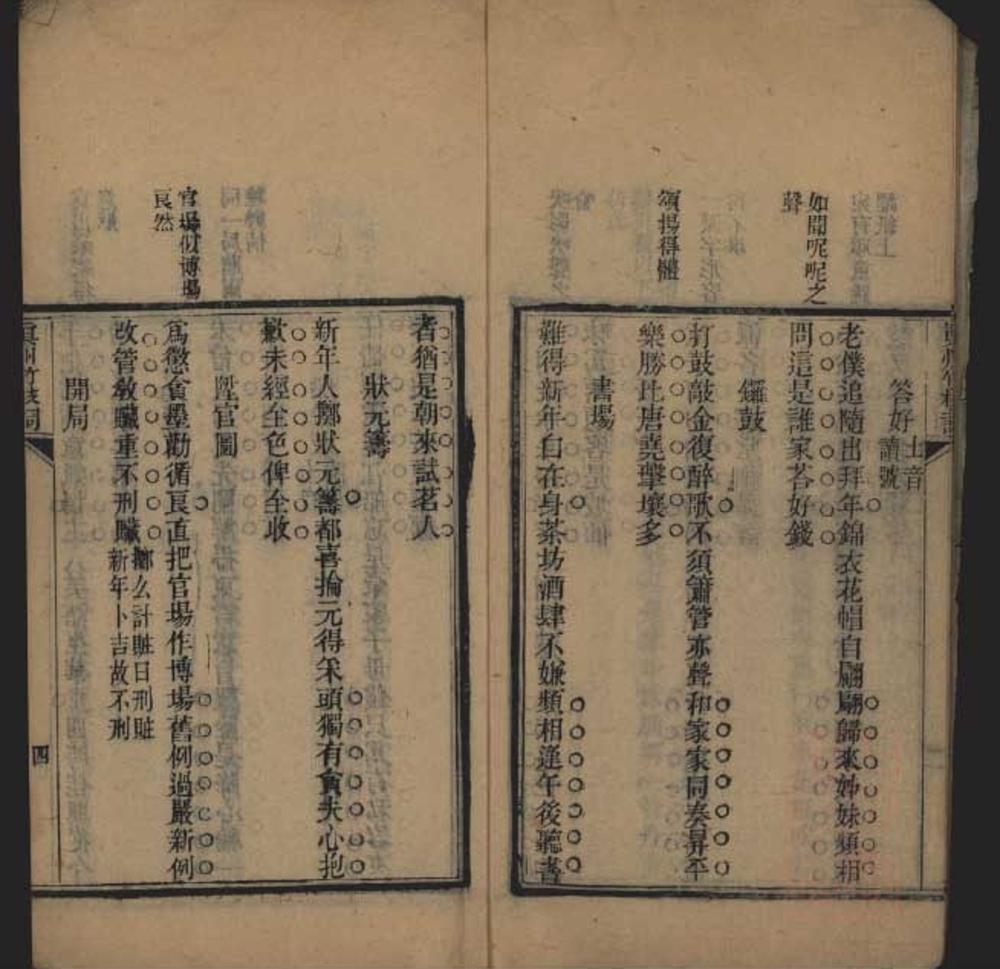 答好 土音讀號
老僕追隨出拜年錦衣花帽自翩翩歸來姊妹頻相
問這是誰家荅好錢
如聞呢呢之
聲
鑼鼓
打鼓敲金復醉歌不須簫管亦聲和家家同奏昇平
樂勝比唐堯擊壤多
頌揚得體
書場
難得新年自在身茶坊酒肆不嫌頻相逢午後聽書
者猶是朝來試茗人
狀元籌
新年人擲狀元籌都喜掄元得采頭獨有貪夫心抱
歉未經全色俾全收
陞官圖
爲懲貪墨勸循良直把官場作博場舊例過嚴新例
改管敎贓重不刑贓 擲么計贓曰刑贓
新年卜吉故不刑
官場似博場
良然
開局
眞州竹枝詞
四